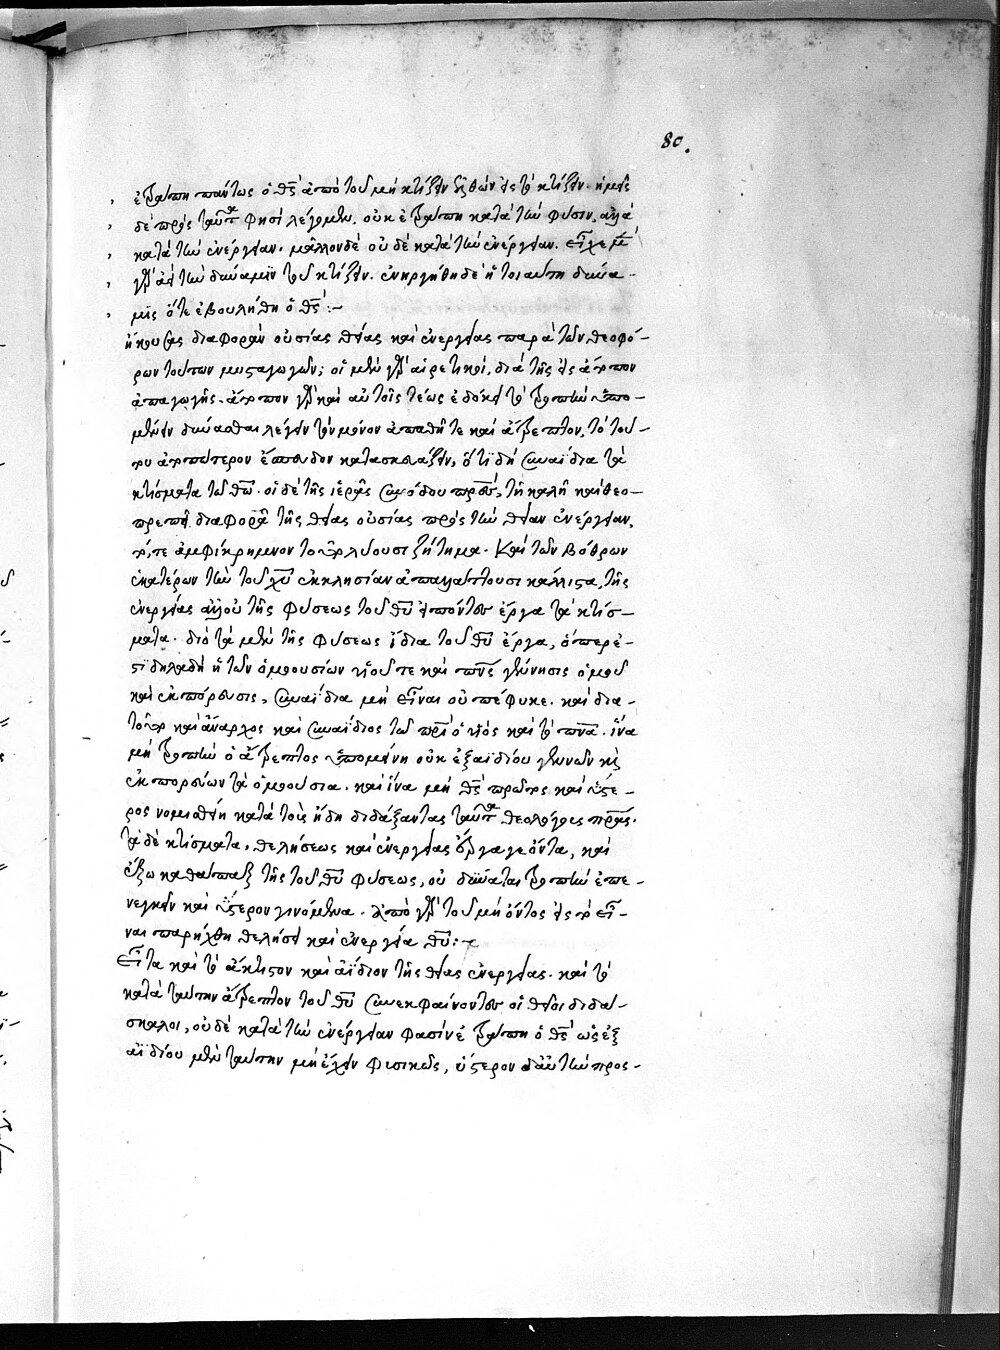 80.
ἐτράπη πάντως ὁ θς ἀπὸ τοῦ μὴ κτίζειν ἐλθὼν εἰς τὸ κτίζειν. ἡμεῖς
δὲ πρὸς ταῦτα φησὶ λέγομεν. οὐκ ἐτράπη κατὰ τὴν φύσιν. ἀλλὰ
κατὰ τὴν ἐνέργειαν. μᾶλλον δὲ οὐδὲ κατὰ τὴν ἐνέργειαν. εἶχε μὲν
γὰρ ἀεὶ τὴν δύναμιν τοῦ κτίζειν. ἐνηργήθη δὲ ἡ τοιαύτη δύνα-
μις ὅτε ἐβουλήθη ὁ θς :-
ἤκουσας διαφορὰν οὐσίας θείας καὶ ἐνεργείας παρὰ τῶν θεοφό-
ρων τούτων μυσταγωγῶν; οἱ μὲν γὰρ αἱρετικοί, διὰ τῆς εἰς ἄτοπον
ἀπαγωγῆς. ἄτοπον γὰρ καὶ αὐτοῖς τέως ἐδόκει τὸ τροπὴν ὑπο-
μένειν δύνασθαι λέγειν τὸν μόνον ἀπαθῆ τε καὶ ἄτρεπτον, τὸ τού-
του ἀτοπώτερον ἔσπευδον κατασκευάζειν, ὅτι δὴ συναΐδια τὰ
κτίσματα τῶ θω. οἱ δὲ τῆς ἱερᾶς συνόδου πρες, τῆ καλῆ καὶ θεο-
πρεπεῖ διαφορᾶ τῆς θείας οὐσίας πρὸς τὴν θείαν ἐνέργειαν,
τό, τε ἀμφίκρημνον τοῦτο λύουσι ζήτημα. καὶ τῶν βόθρων
ἑκατέρων τὴν τοῦ χυ ἐκκλησίαν ἀπαλάττουσι κάλλιστα, τῆς
ἐνεργείας ἀλλ' οὐ τῆς φύσεως τοῦ θυ εἰπόντες ἔργα τὰ κτίσ-
ματα. διὸ τὰ μὲν τῆς φύσεως ἴδια τοῦ θυ ἔργα, ὅπερ ἐ-
στὶ δηλαδὴ ἡ τῶν ὁμοουσίων υἱοῦ τε καὶ πνς γέννησις ὁμοῦ
καὶ ἐκπόρευσις, συναΐδια μὴ εἶναι οὐ πέφυκε. καὶ διὰ
τοῦτο καὶ ἄναρχος καὶ συναΐδιος τῶ πρὶ ὁ υἱὸς καὶ τὸ πνα. ἵνα
μὴ τροπὴν ὁ ἄτρεπτος ὑπομείνη οὐκ ἐξ ἀϊδίου γεννῶν καὶ
ἐκπορεύων τὰ ὁμοούσια. καὶ ἵνα μὴ θς πρῶτος καὶ ὕστε-
ρος νομισθείη κατὰ τοὺς ἤδη διδάξαντας ταῦτα θεολόγους πρας.
τὰ δὲ κτίσματα, θελήσεως καὶ ἐνεργείας ἔργα γε ὄντα, καὶ
ἔξω καθάπαξ τῆς τοῦ θυ φύσεως, οὐ δύναται τροπὴν ἐπε-
νεγκεῖν καὶ ὕστερον γινόμενα. ἀπὸ γὰρ τοῦ μὴ ὄντος εἰς τὸ εἶ-
ναι παρήχθη θελήσει καὶ ἐνεργεία θυ :~
Εἶτα καὶ τὸ ἄκτιστον καὶ ἀΐδιον τῆς θείας ἐνεργείας. καὶ τὸ
κατὰ ταύτην ἄτρεπτον τοῦ θυ συνεκφαίνοντες οἱ θεῖοι διδά-
σκαλοι, οὐδὲ κατὰ τὴν ἐνέργειαν φασὶν ἐτράπη ὁ θς ὡς ἐξ
ἀϊδίου μὲν ταύτην μὴ ἔχειν φυσικῶς, ὕστερον δ' αὐτὴν προσ-